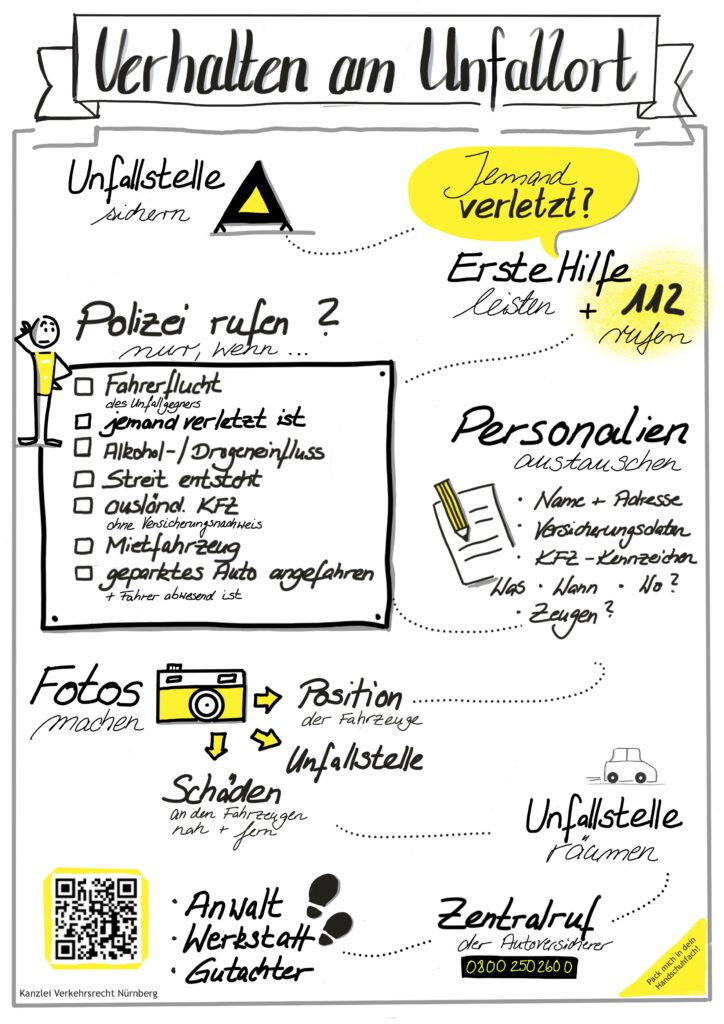 Verhalten am Unfallort
Unfallstelle
sichern
Jemand
verletzt?
Erste Hilfe
leisten + 112
rufen
Polizei rufen ?
nur, wenn ...
Fahrerflucht
des Unfallgegners
jemand verletzt ist
Alkohol-/Drogeneinfluss
Streit entsteht
ausländ. KFZ
ohne Versicherungsnachweis
Mietfahrzeug
geparktes Auto angefahren
+ Fahrer abwesend ist
Personalien
austauschen
· Name + Adresse
· Versicherungsdaten
· KFZ-Kennzeichen
Was · Wann · Wo?
· Zeugen?
Fotos
machen
Position
der Fahrzeuge
Unfallstelle
Schäden
an den Fahrzeugen
nah + fern
Unfallstelle
räumen
Zentralruf
der Autoversicherer
0800 2502600
· Anwalt
· Werkstatt
· Gutachter
Kanzlei Verkehrsrecht Nürnberg
Pack mich in dein
Handschuhfach!